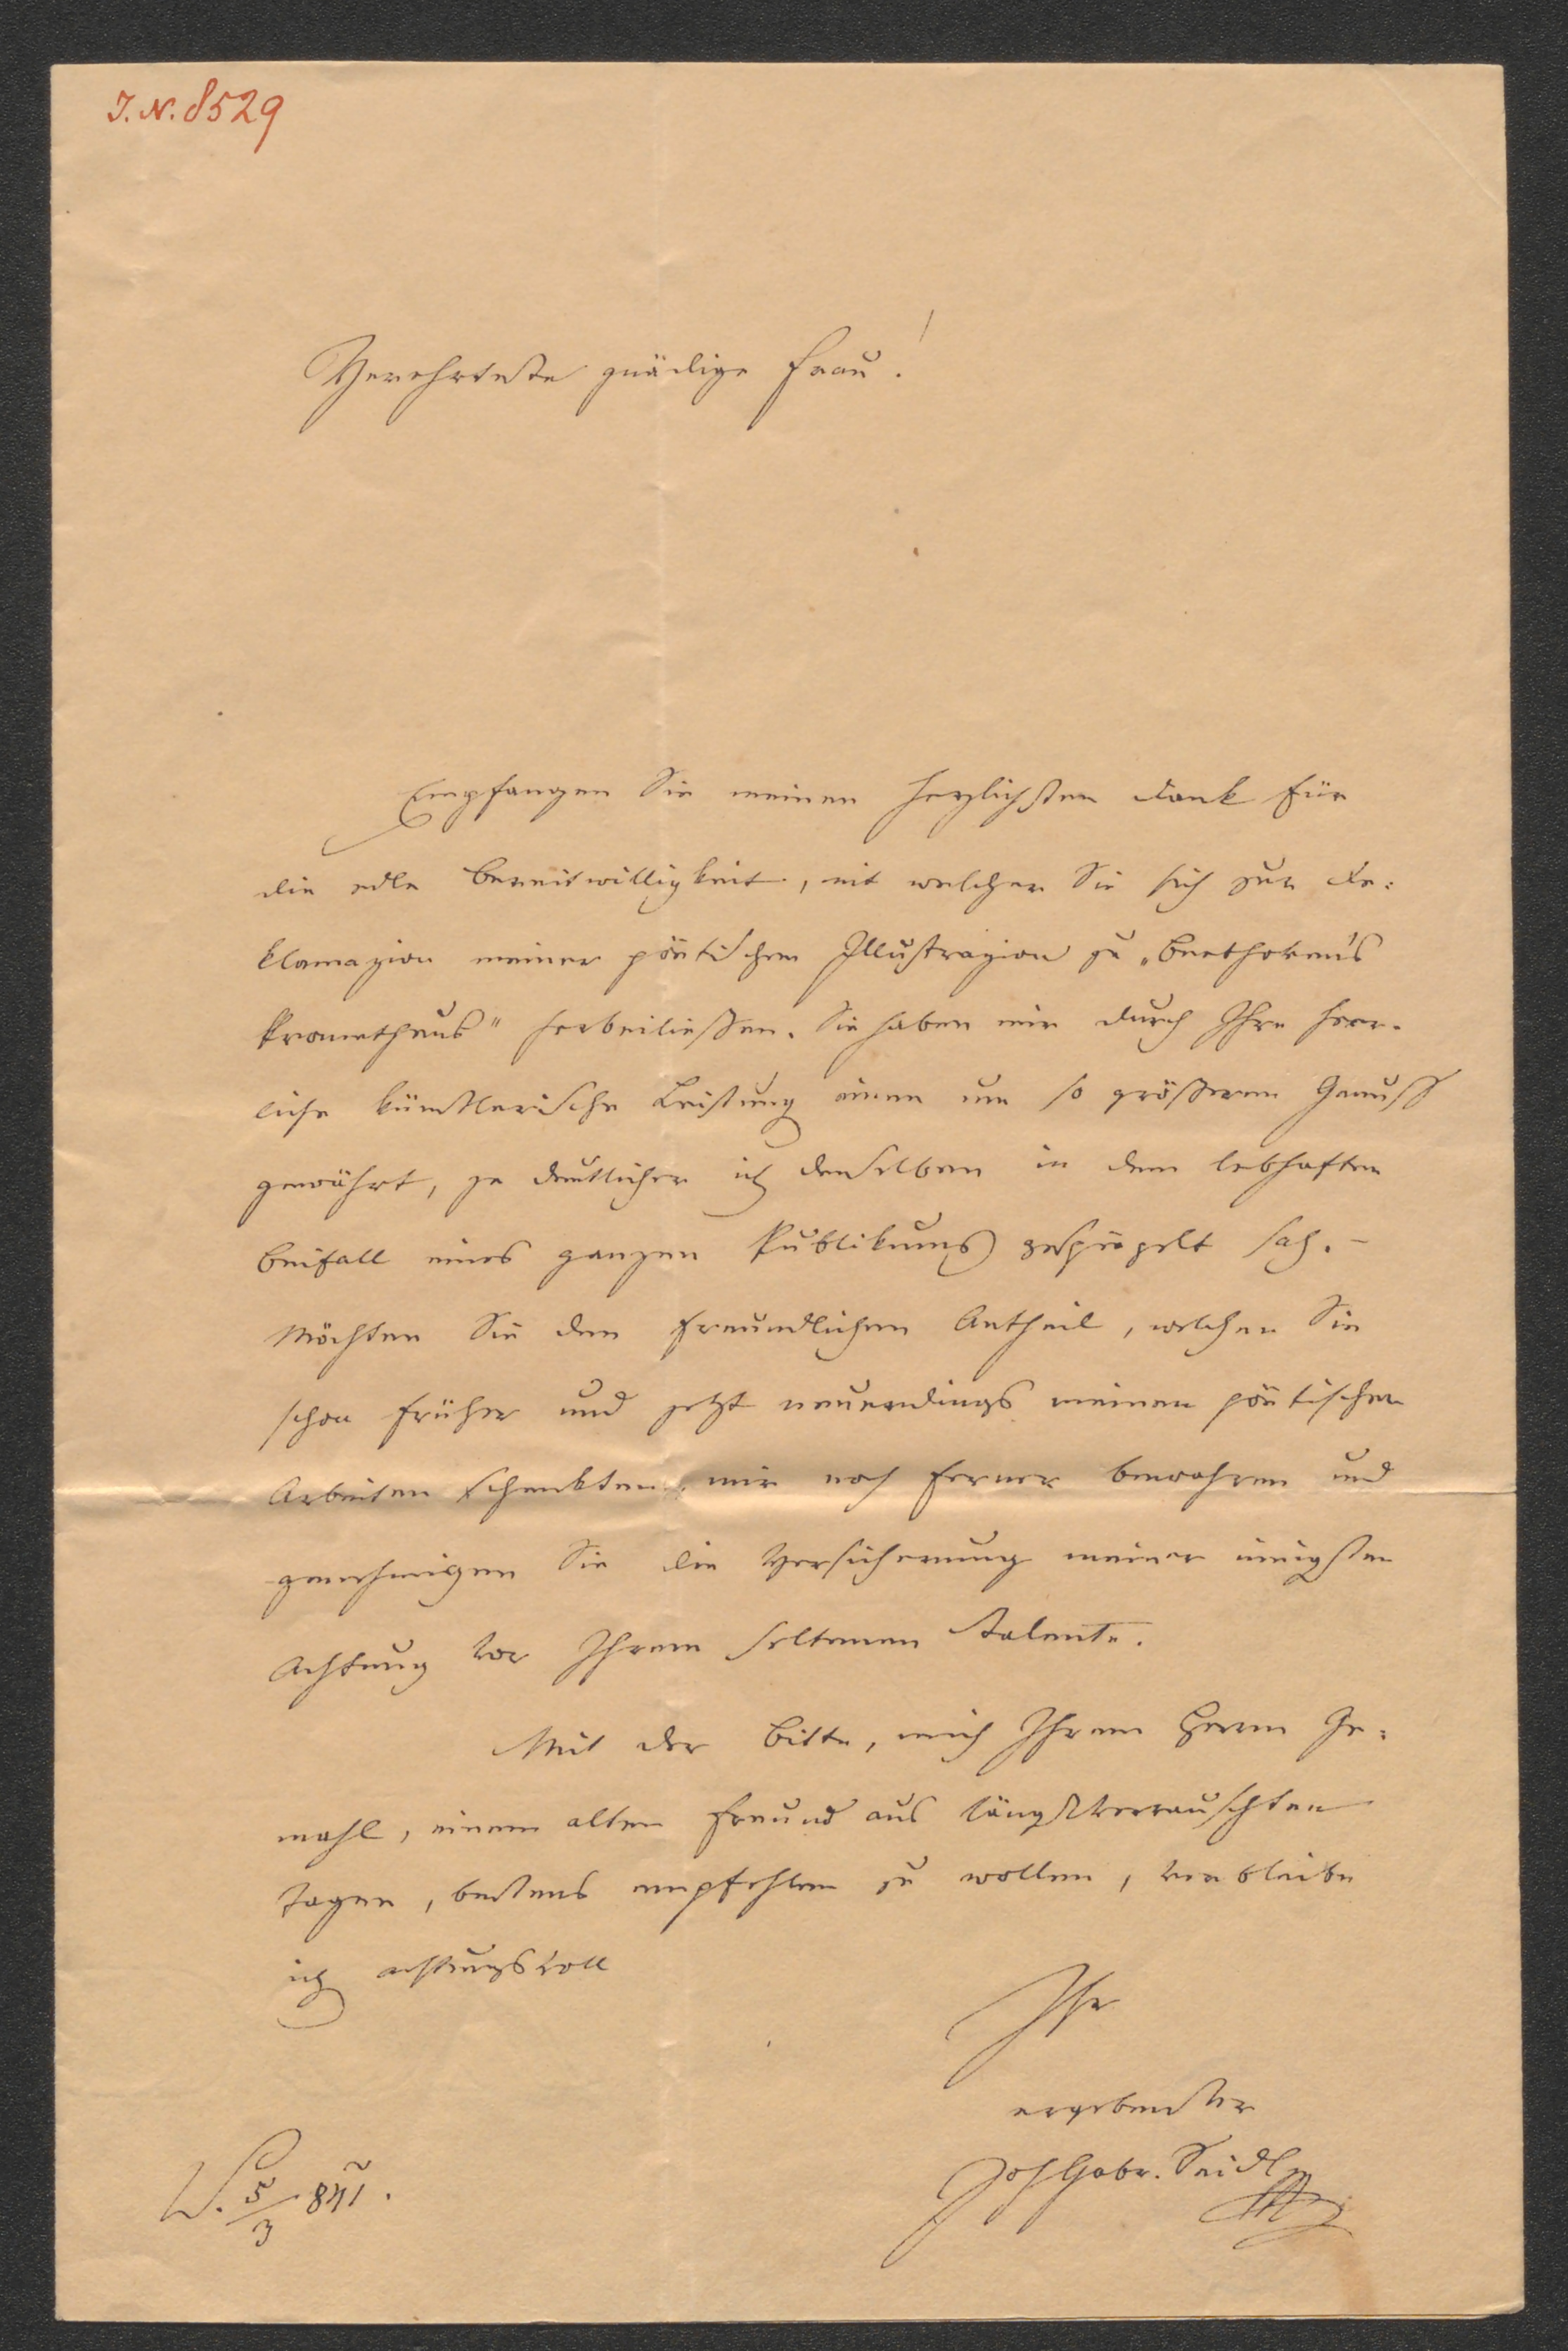 I. N. 8529
Verehrteste gnädige Frau!
Empfangen Sie meinen herzlichsten Dank für
die edle Bereitwilligkeit, mit welcher Sie sich zur De-
klamazion meiner pöetischen Illustrazion zu „Beethoven's
Prometheus" herbeiließen. Sie haben mir durch Ihre herr-
liche künstlerische Leistung einen um so größeren Genuß
gewährt, je deutlicher ich denselben in dem lebhaften
Beifall eines ganzen Publikums gespiegelt sah. –
Möchten Sie den freundlichen Antheil, welchen Sie
schon früher und jetzt neuerdings meinen pöetischen
Arbeiten schenkten, mir noch ferner bewahren und
genehmigen Sie die Versicherung meiner innigsten
Achtung vor Ihrem seltenen Talente.
Mit der Bitte, mich Ihrem Herrn Ge-
mahl, einem alten Freund aus längstverrauschten
Tagen, bestens empfehlen zu wollen, verbleibe
ich achtungsvoll
Ihr
ergebenster
Joh Gabr. Seidl
W. 5/3 841.